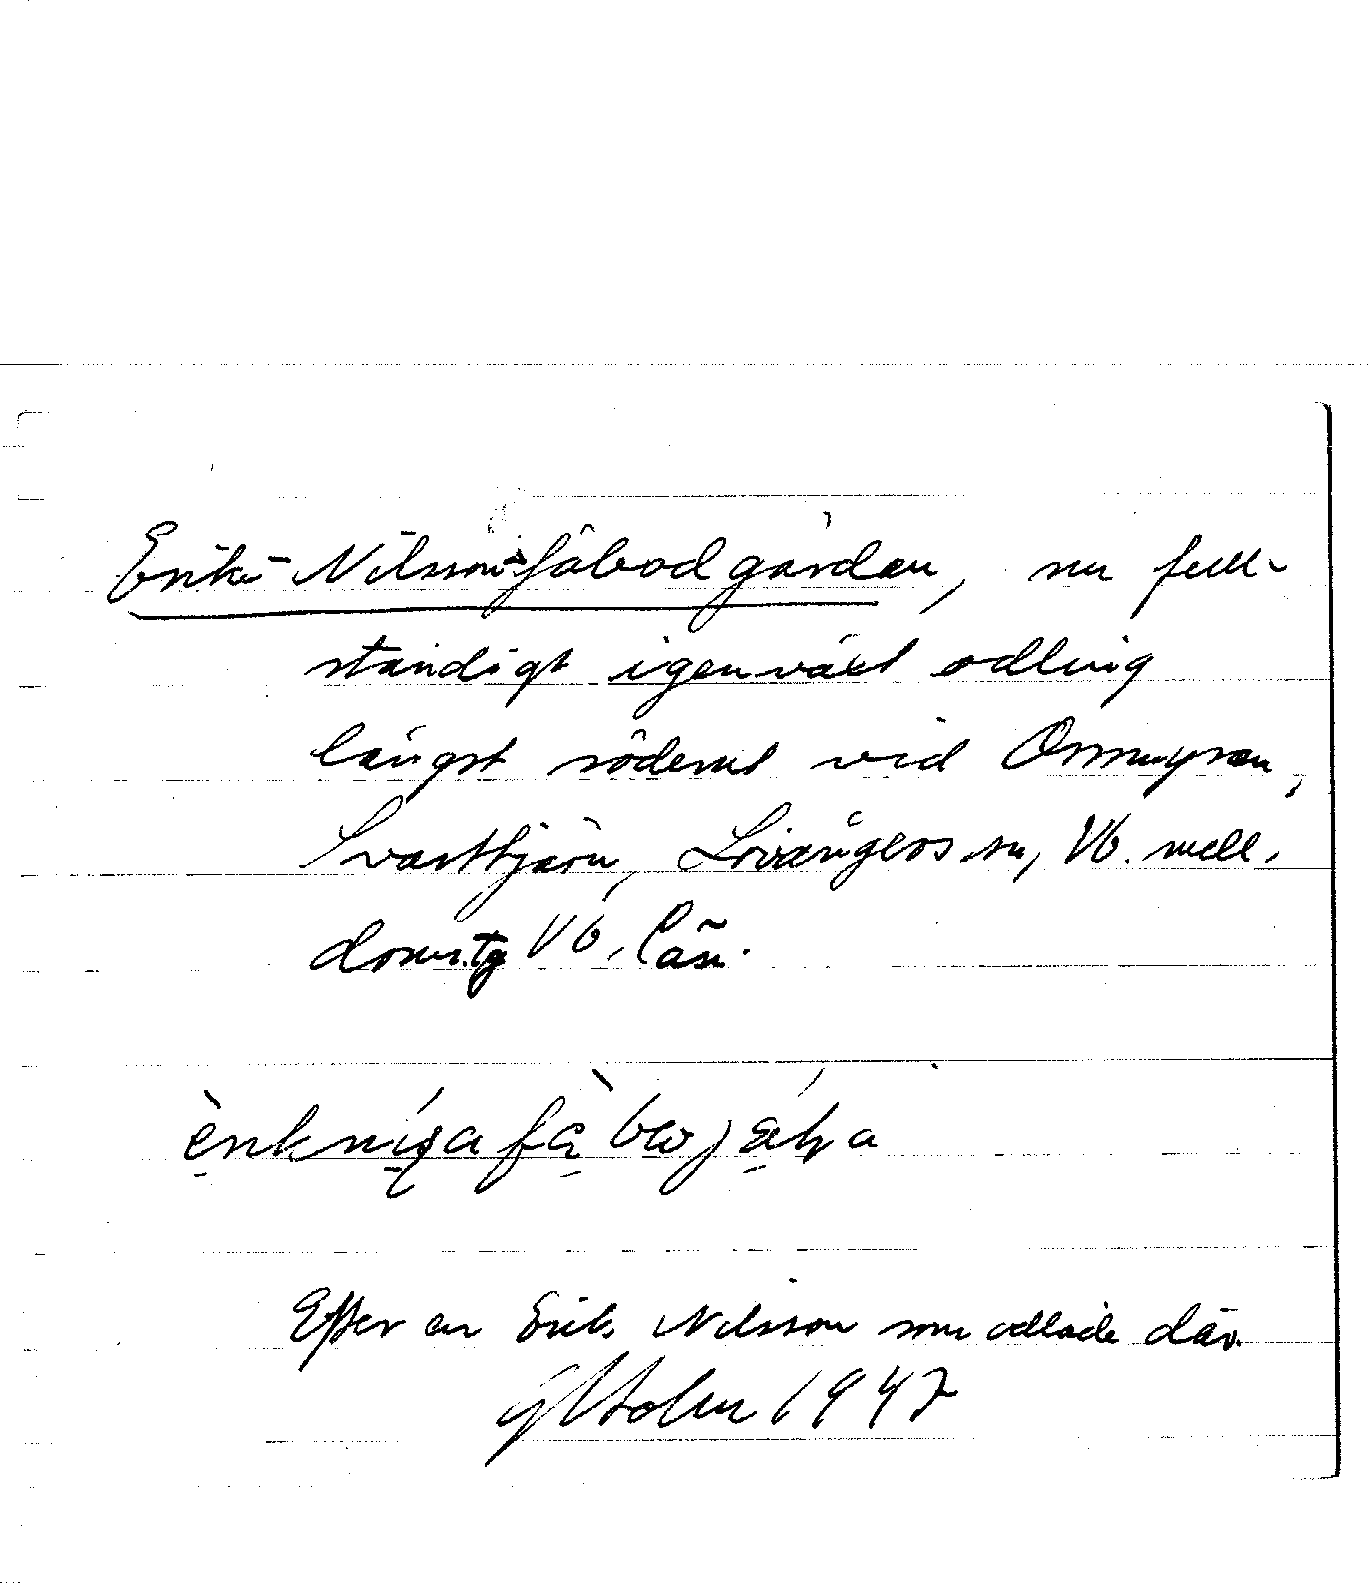 Erik-Nilssonsfäbodgärdan, nu full-
ständigt igenväxt odling
längst söderut vid Ormmyran,
Svarttjärn, Lövångers sn, Vb. mell.
doms.tg Vb. län.
Efter en Erik Nilsson som odlade där.
Holm 1947